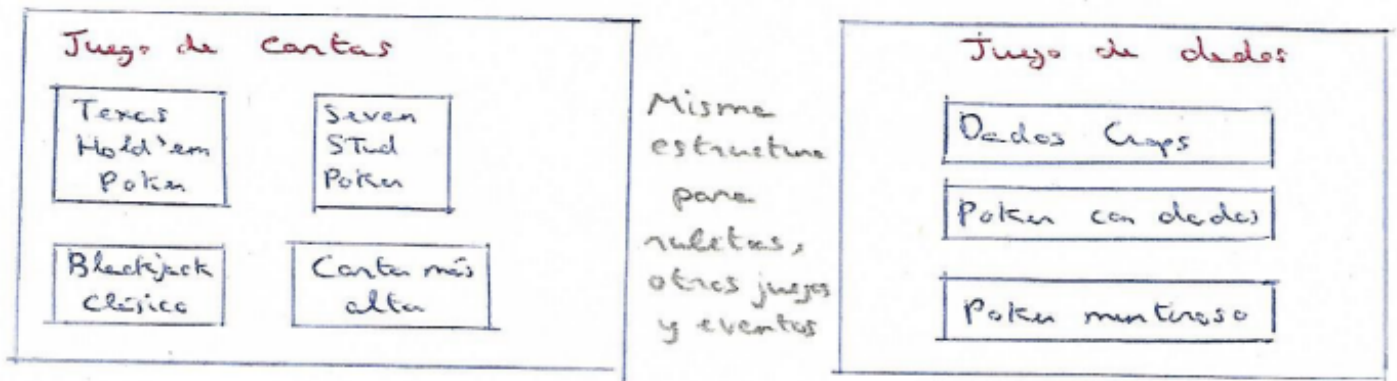 Juego de cartas
Texas
Hold'em
Poker
Seven
STud
Poker
Blackjack
Clásico
Carta más
alta
Misma
estructura
para
ruletas,
otros juegos
y eventos
Juego de dados
Dados Craps
Poker con dados
Poker mentiroso